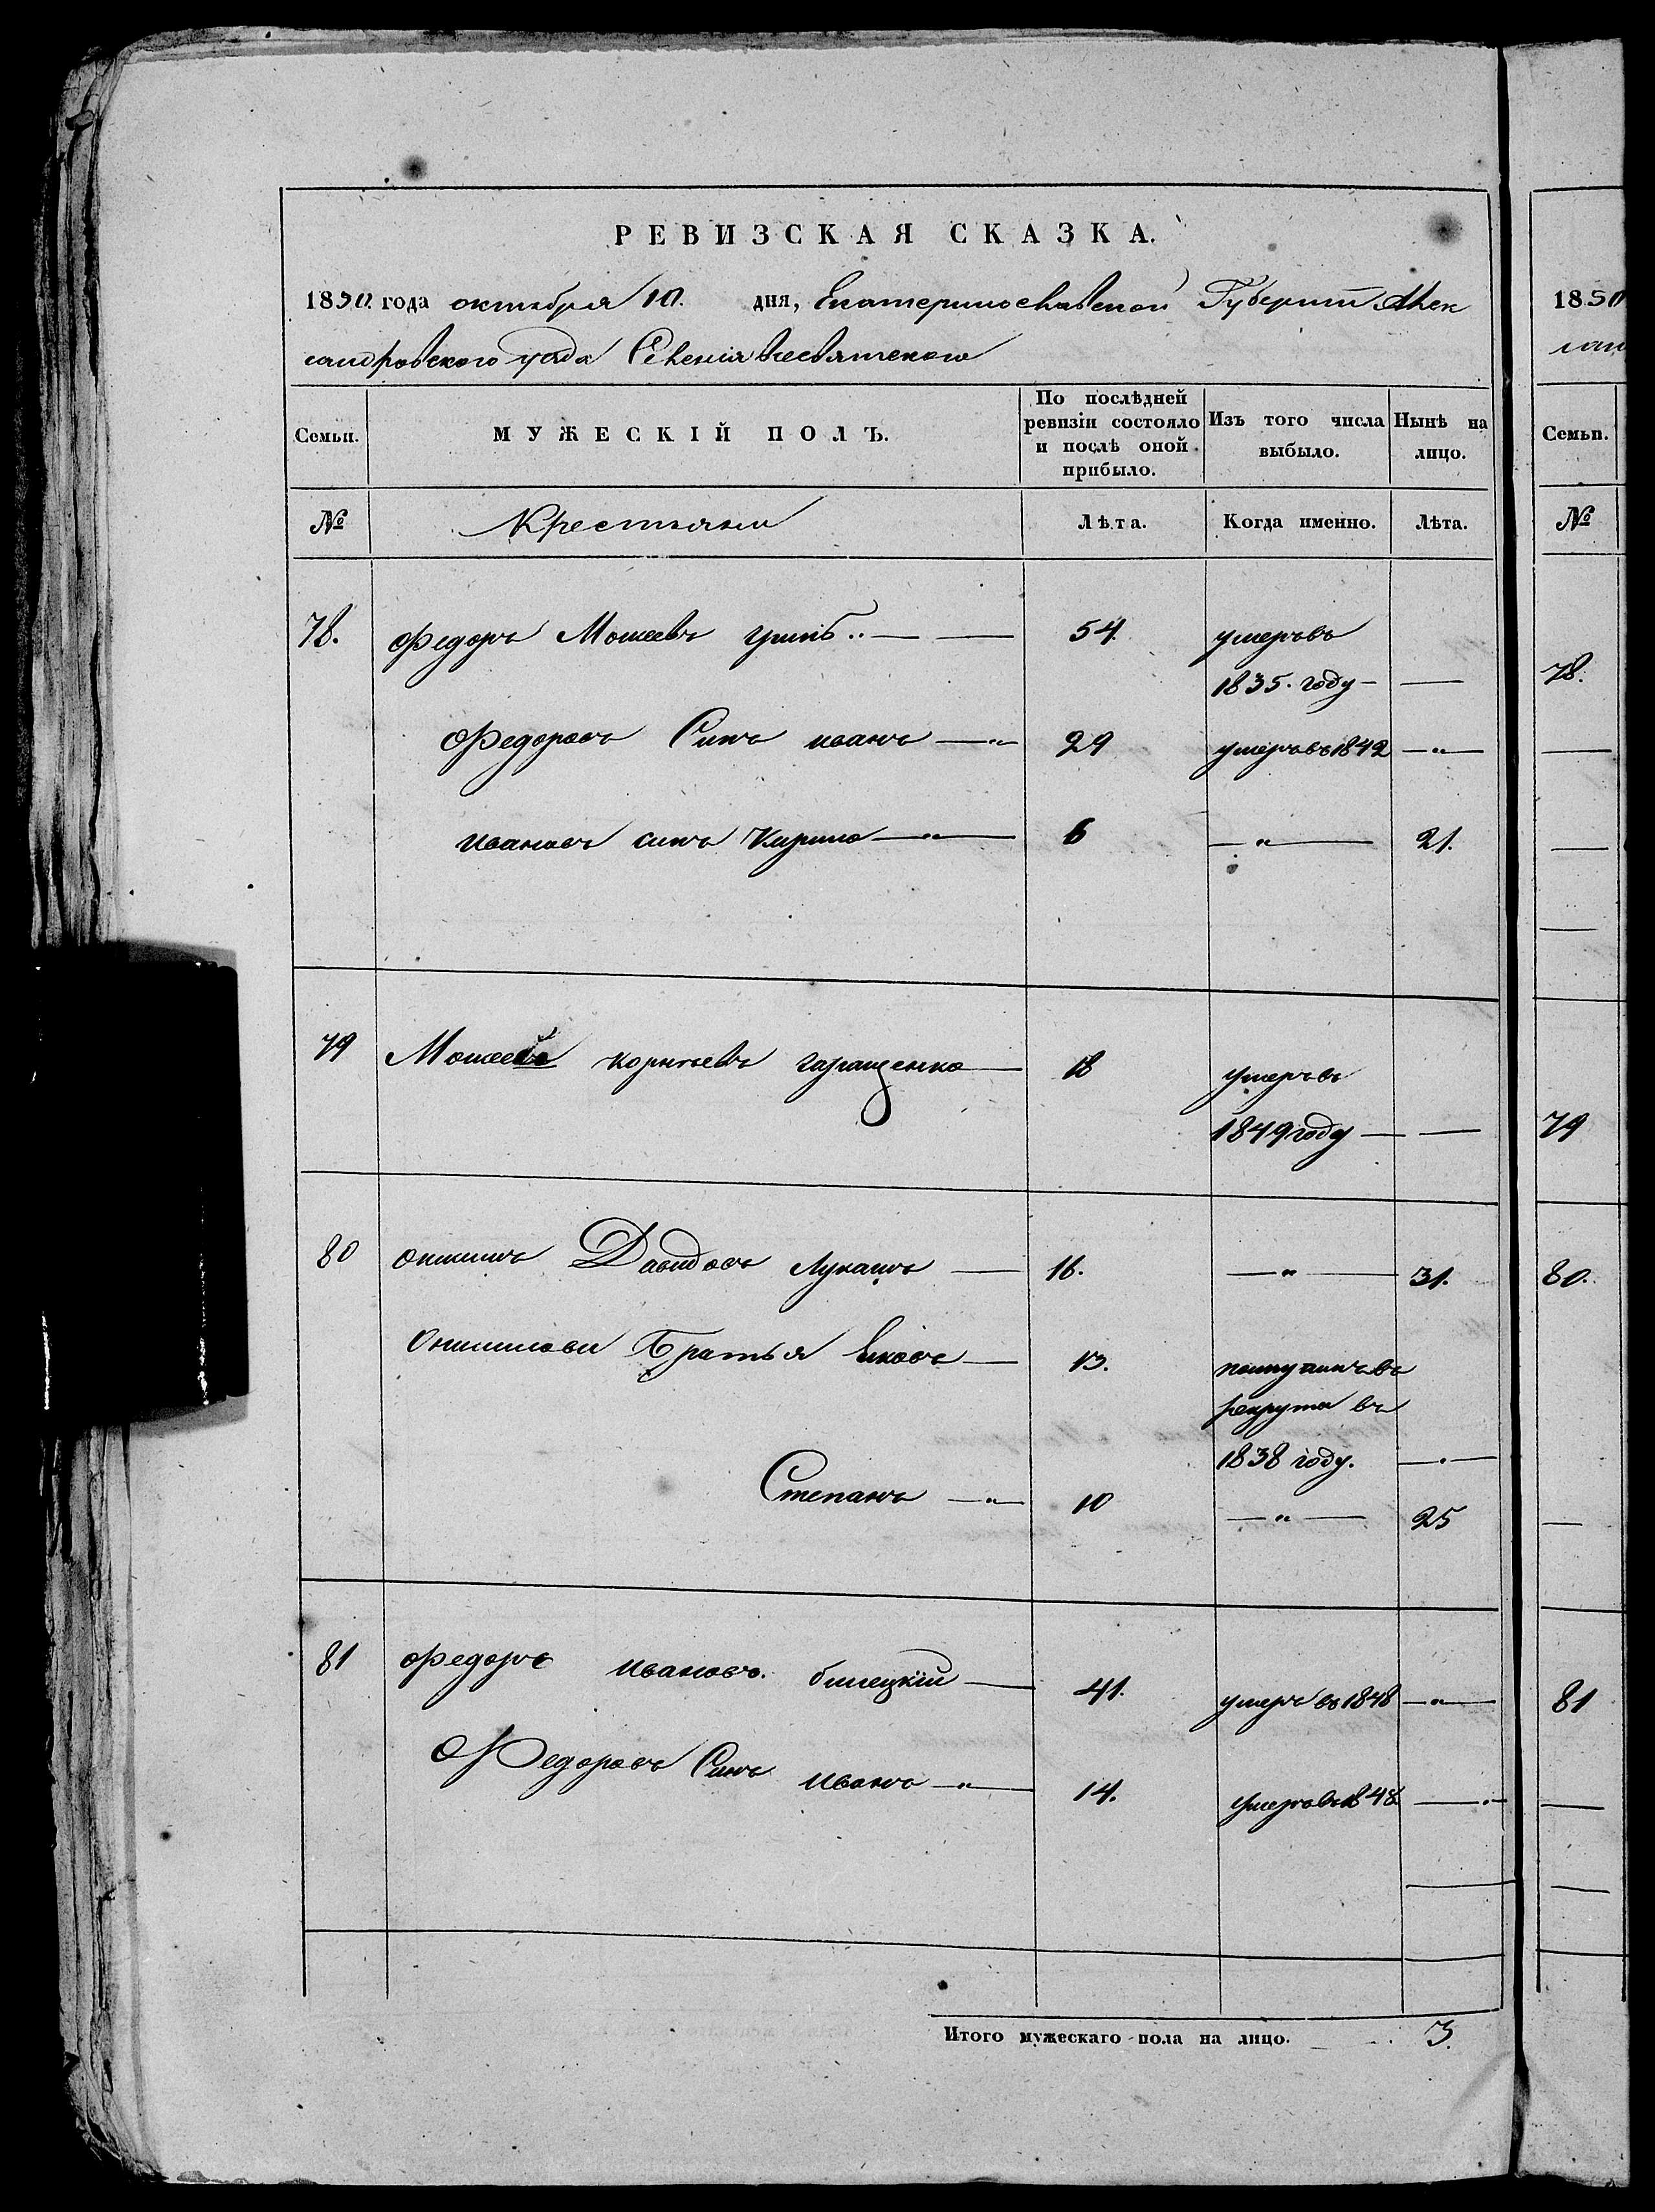 РЕВИЗСКАЯ СКАЗКА.
1850 года октября 10. дня, Екатеринославской Губернии Алек
сандровского уезда Селения Всесвятского
Семьи. МУЖЕСКІЙ ПОЛЪ. По послѣдней ревизіи состояло и послѣ оной прибыло. Изъ того числа выбыло. Нынѣ на лицо.
№ Крестьяни Лѣта. Когда именно. Лѣта.
78. Федоръ Мосеевъ 54. умеръ въ
1835. году —
Федоровъ Синъ иванъ — " — 29 умеръ въ 1842 — " —
ивановъ синъ Кирило — " — 6 — " — 21.
79 Мосеевъ корнеевъ гаращенко — 18 умеръ въ
1849 году — —
80 онисимъ Давидовъ Лукашъ — 16. — " — 31.
Онисимови Братья Яковъ — 13. поступилъ въ
рекрути въ
1838 году. — " —
Степанъ — " — 10 — " — 25
81 федоръ ивановъ. билецкій — 41. умеръ въ 1848 — " —
Федоровъ Синъ иванъ — " — 14. умеръ въ 1848 — " —
Итого мужескаго пола на лицо. 3.
1850
сан
Семьи.
№
78.
79
80.
81